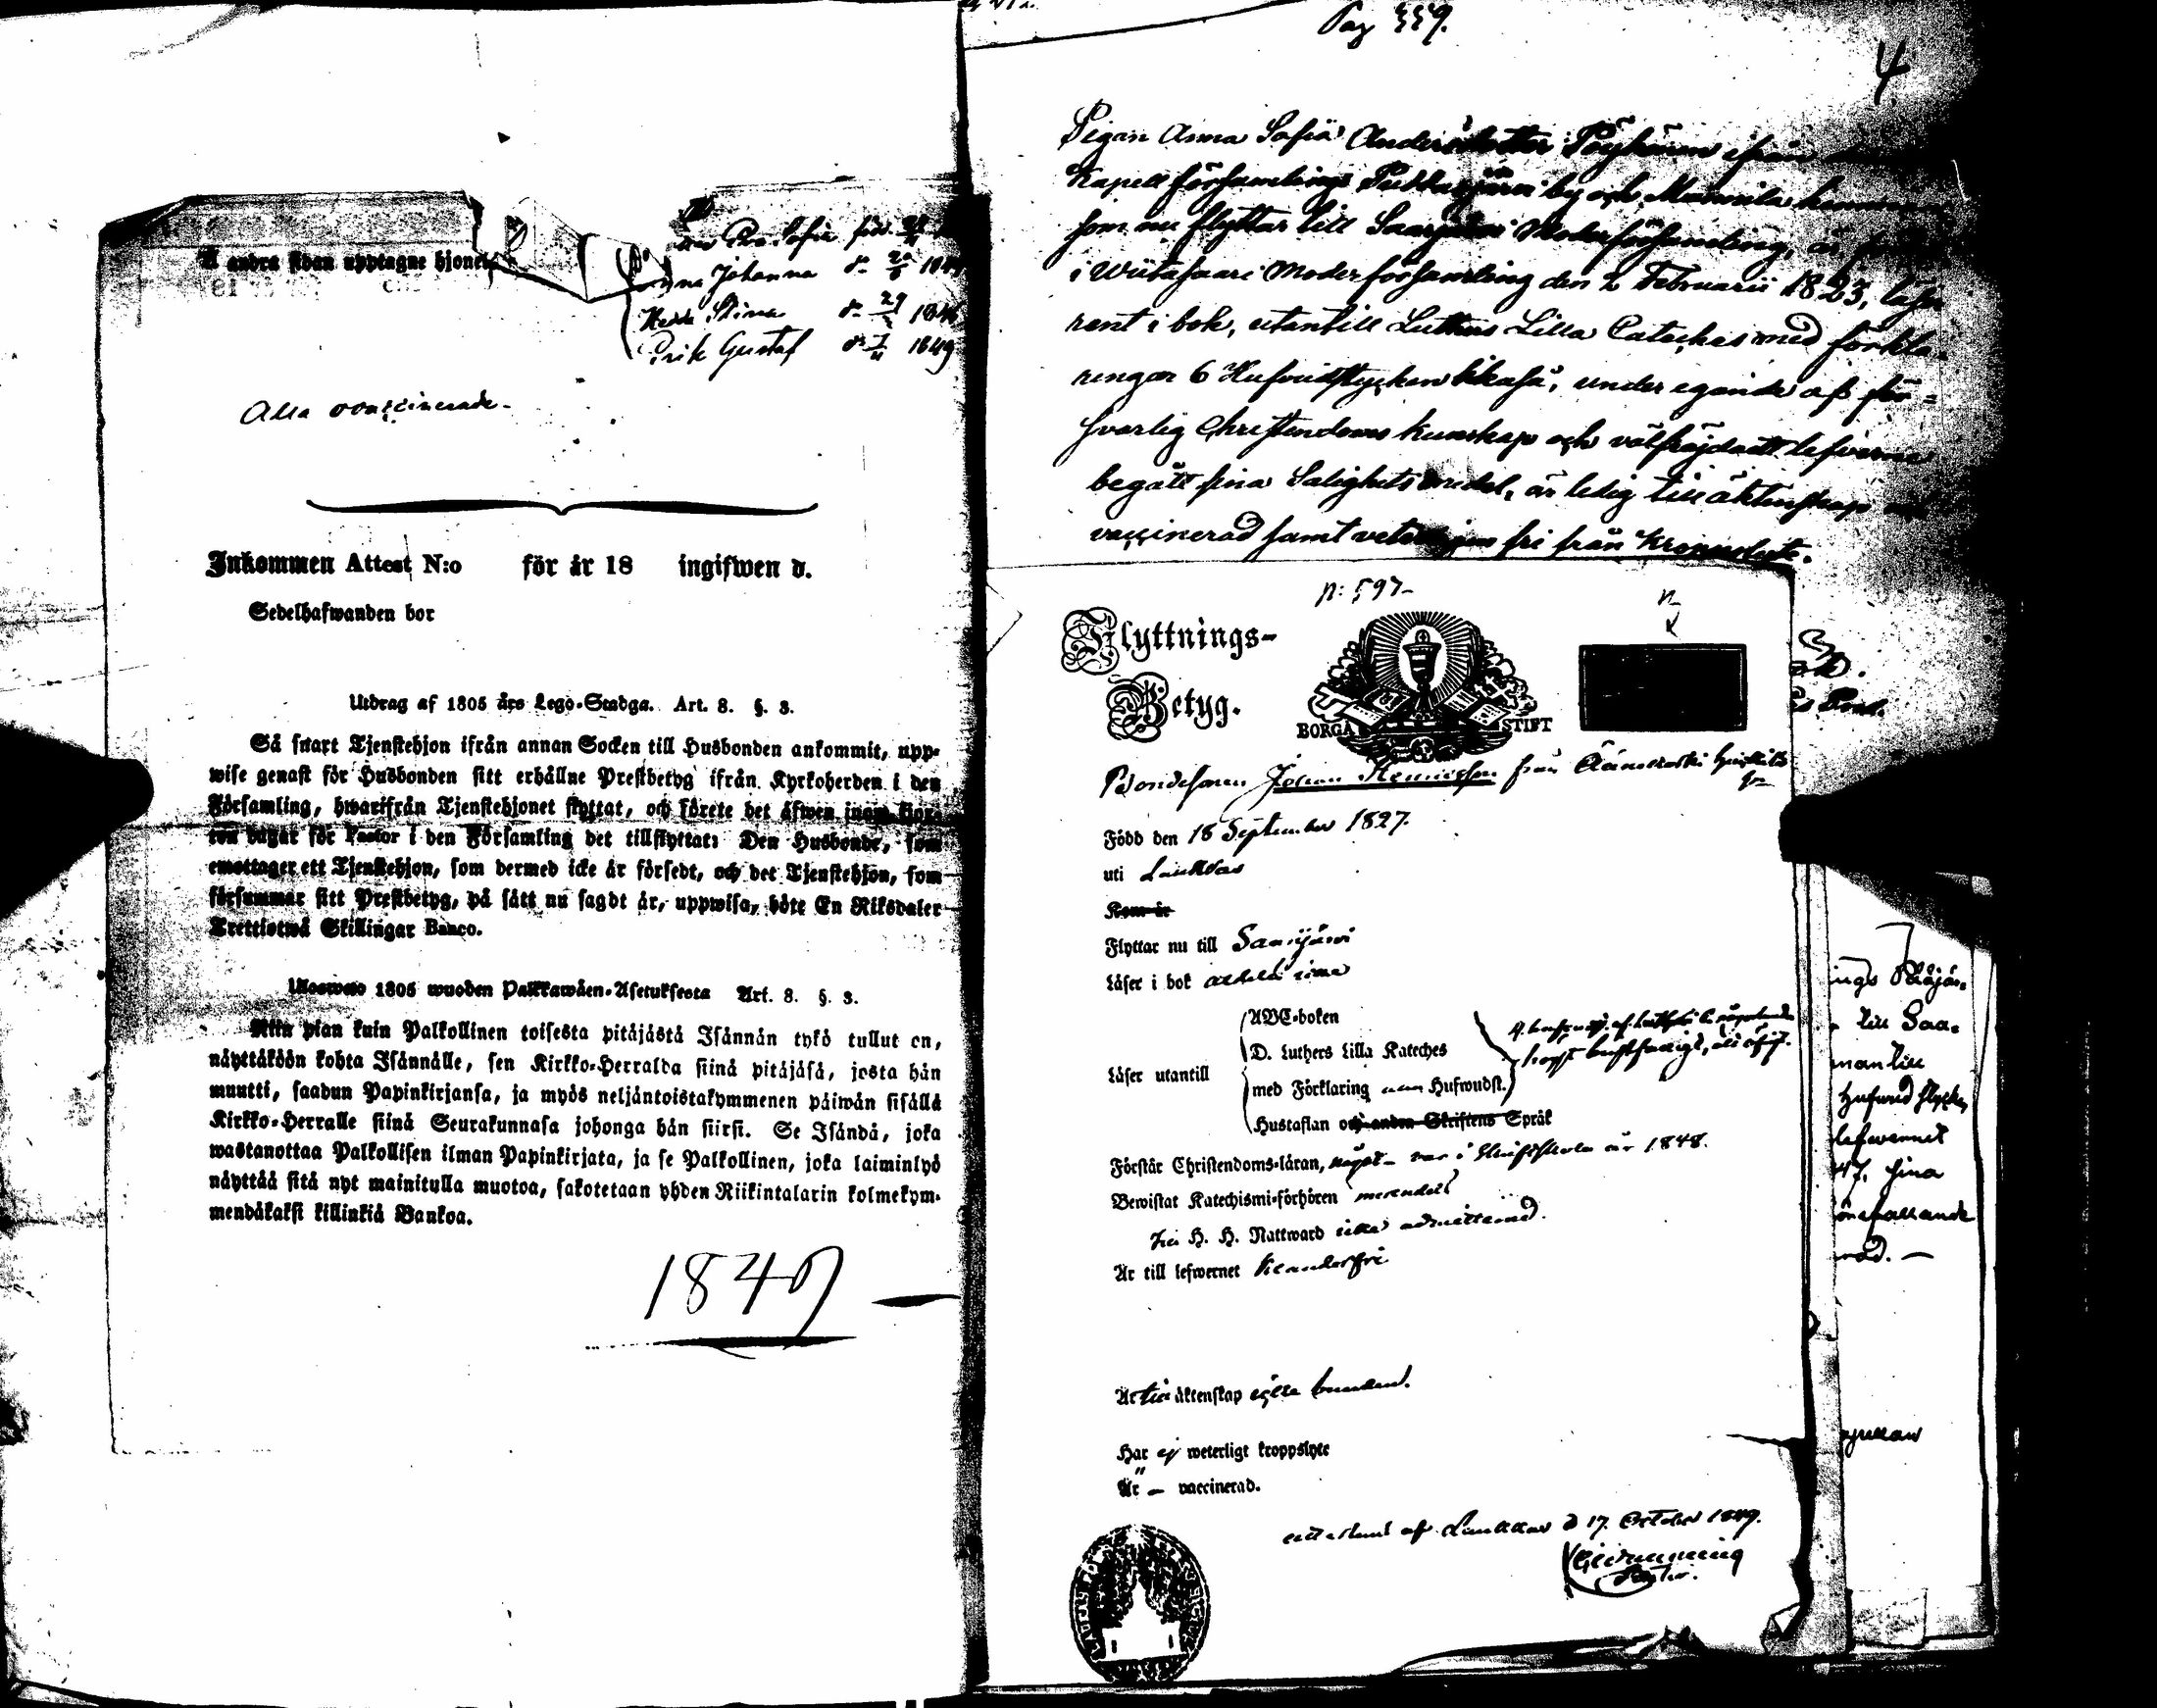 Å andra sidan upptagne hjonets
Eva Sofia föd.
Anna Johanna do 20/5
Hedda Stina do 29
Erik Gustaf do 7/4 1849
Alla vaccinerade.
Inkommen Attest N:o för år 18 ingifwen d.
Sedelhafwanden bor
Utdrag af 1805 års Lego-Stadga. Art. 8. §. 3.
Så snart Tjenstehjon ifrån annan Socken till Husbonden ankommit, upp-
wise genast för Husbonden sitt erhållne Prestbetyg ifrån Kyrkoherden i den
Församling, hwarifrån Tjenstehjonet flyttat, och förete det äfwen inom fjor-
ton dagar för Pastor i den Församling det tillflyttat: Den Husbonde, som
emottager ett Tjenstehjon, som dermed icke är försedt, och det Tjenstehjon, som
försummar sitt Prestbetyg, på sätt nu sagdt är, uppwisa, böte En Riksdaler
Trettiotwå Skillingar Banco.
Ulosweto 1805 wuoden Palkkawäen-Asetuksesta Art. 8. §. 3.
Niin pian kuin Palkollinen toisesta pitäjästä Isännän tykö tullut on,
näyttäköön kohta Isännälle, sen Kirkko-Herralda siinä pitäjäsä, josta hän
muutti, saadun Papinkirjansa, ja myös neljäntoistakymmenen päiwän sisällä
Kirkko-Herralle siinä Seurakunnasa johonga hän siirsi. Se Isändä, joka
wastanottaa Palkollisen ilman Papinkirjata, ja se Palkollinen, joka laiminlyö
näyttää sitä nyt mainitulla muotoa, sakotetaan yhden Riikintalarin kolmekym-
mendäkaksi killinkiä Bankoa.
1849
Pag 339.
4
Pigan Anna Sofia Andersdotter Pöyhönen ifrån
Kapellförsamlings by och hemman
som nu flyttar till Saarijärvi Moderförsamling, är född
i Wiitasaari Moderförsamling den 2 Februarii 1823, läser
rent i bok, utantill Luthers Lilla Cateches med förkla-
ringar 6 Hufvudstycken likaså, under egande af för-
svarlig Christendoms kunskap och välfräjdadt lefverne
begått sina Salighetsmedel, är ledig till äktenskap och
vaccinerad samt veterligen fri från kroppslyte.
p: 597
Flyttnings-
Betyg.
BORGÅ STIFT
Bondesonen Johan Henricsson från Äänekoski
Född den 18 September 1827.
uti Laukkas
Kom år
Flyttar nu till Saarijärvi
Läser i bok
Läser utantill
ABC-boken
D. Luthers Lilla Kateches
med Förklaring Hufwudst.
Hustaflan och andra Skriftens Språk
Förstår Christendoms-läran, något - var i Skriftskola år 1848.
Bewistat Katechismi-förhören
till H. H. Nattward icke admitterad.
Är till lefwernet klanderfri
Är till äktenskap ej bunden.
Har ej weterligt kroppslyte
Är - vaccinerad.
attesterat af Laukkas d 17. October 1849.
ings
till Saa-
man till
Hufvud stycken
lefvernet
47, sina